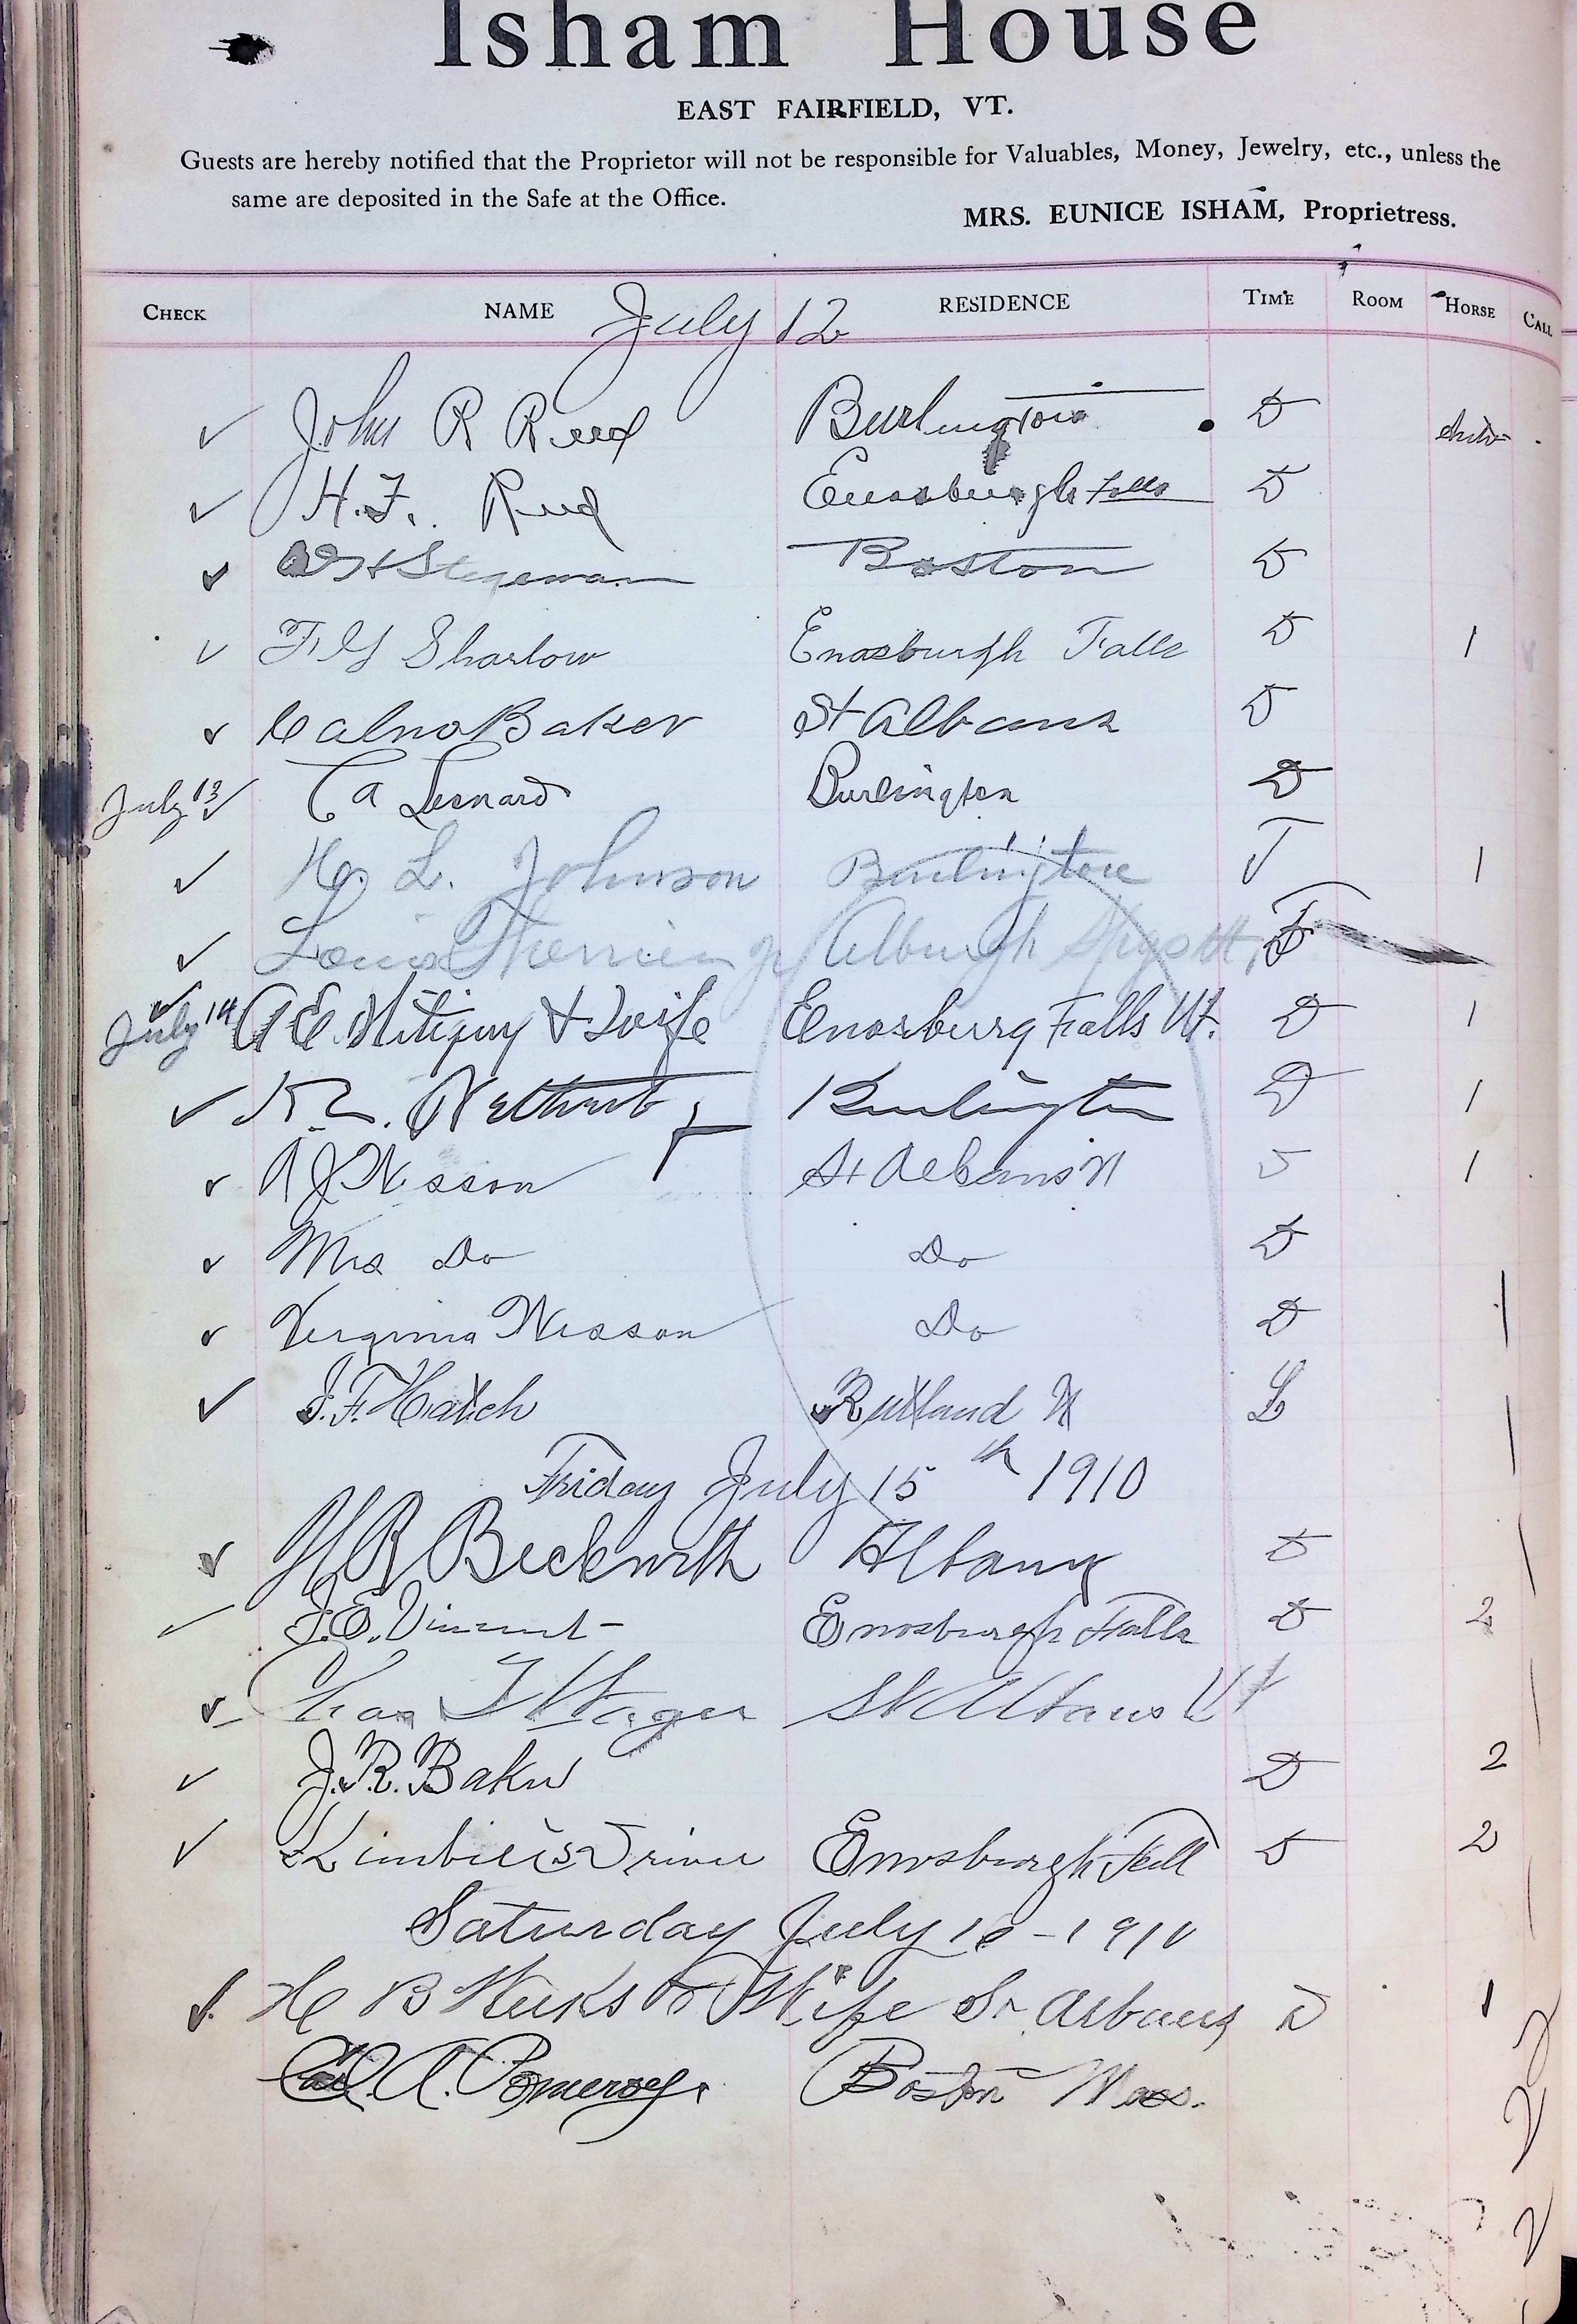 Isham House
EAST FAIRFIELD, VT.
Guests are hereby notified that the Proprietor will not be responsible for Valuables, Money, Jewelry, etc., unless the
same are deposited in the Safe at the Office.
MRS. EUNICE ISHAM, Proprietress.
CHECK NAME RESIDENCE TIME ROOM HORSE CALL
July 12
John R Reed Burlington D
H.F. Reed Enosburgh Falls D
Stegeman Boston D
Sharlow Enosburgh Falls D 1
Calno Baker St Albans D
July 13 C a Leonard Burlington D
H. L. Johnson Burlington T 1
Louis Therrien Jr Alburgh Spgs Vt
July 14 A E. Mitiguy & Wife Enosburg Falls Vt. D 1
Burlington D 1
A J Wesson St Albans Vt D 1
Mrs Do Do D
Virginia Wesson Do D
J.F. Hatch Rutland Vt L
Friday July 15th 1910
H R Beckwith Albany D
J.E. Vincent Enosburgh Falls D 2
Chas St Albans Vt
J.R. Baker D 2
Driver Enosburgh Fall D 2
Saturday July 16 - 1910
H B Weeks & Wife St. Albans D 1
A. Pomeroy. Boston Mass.